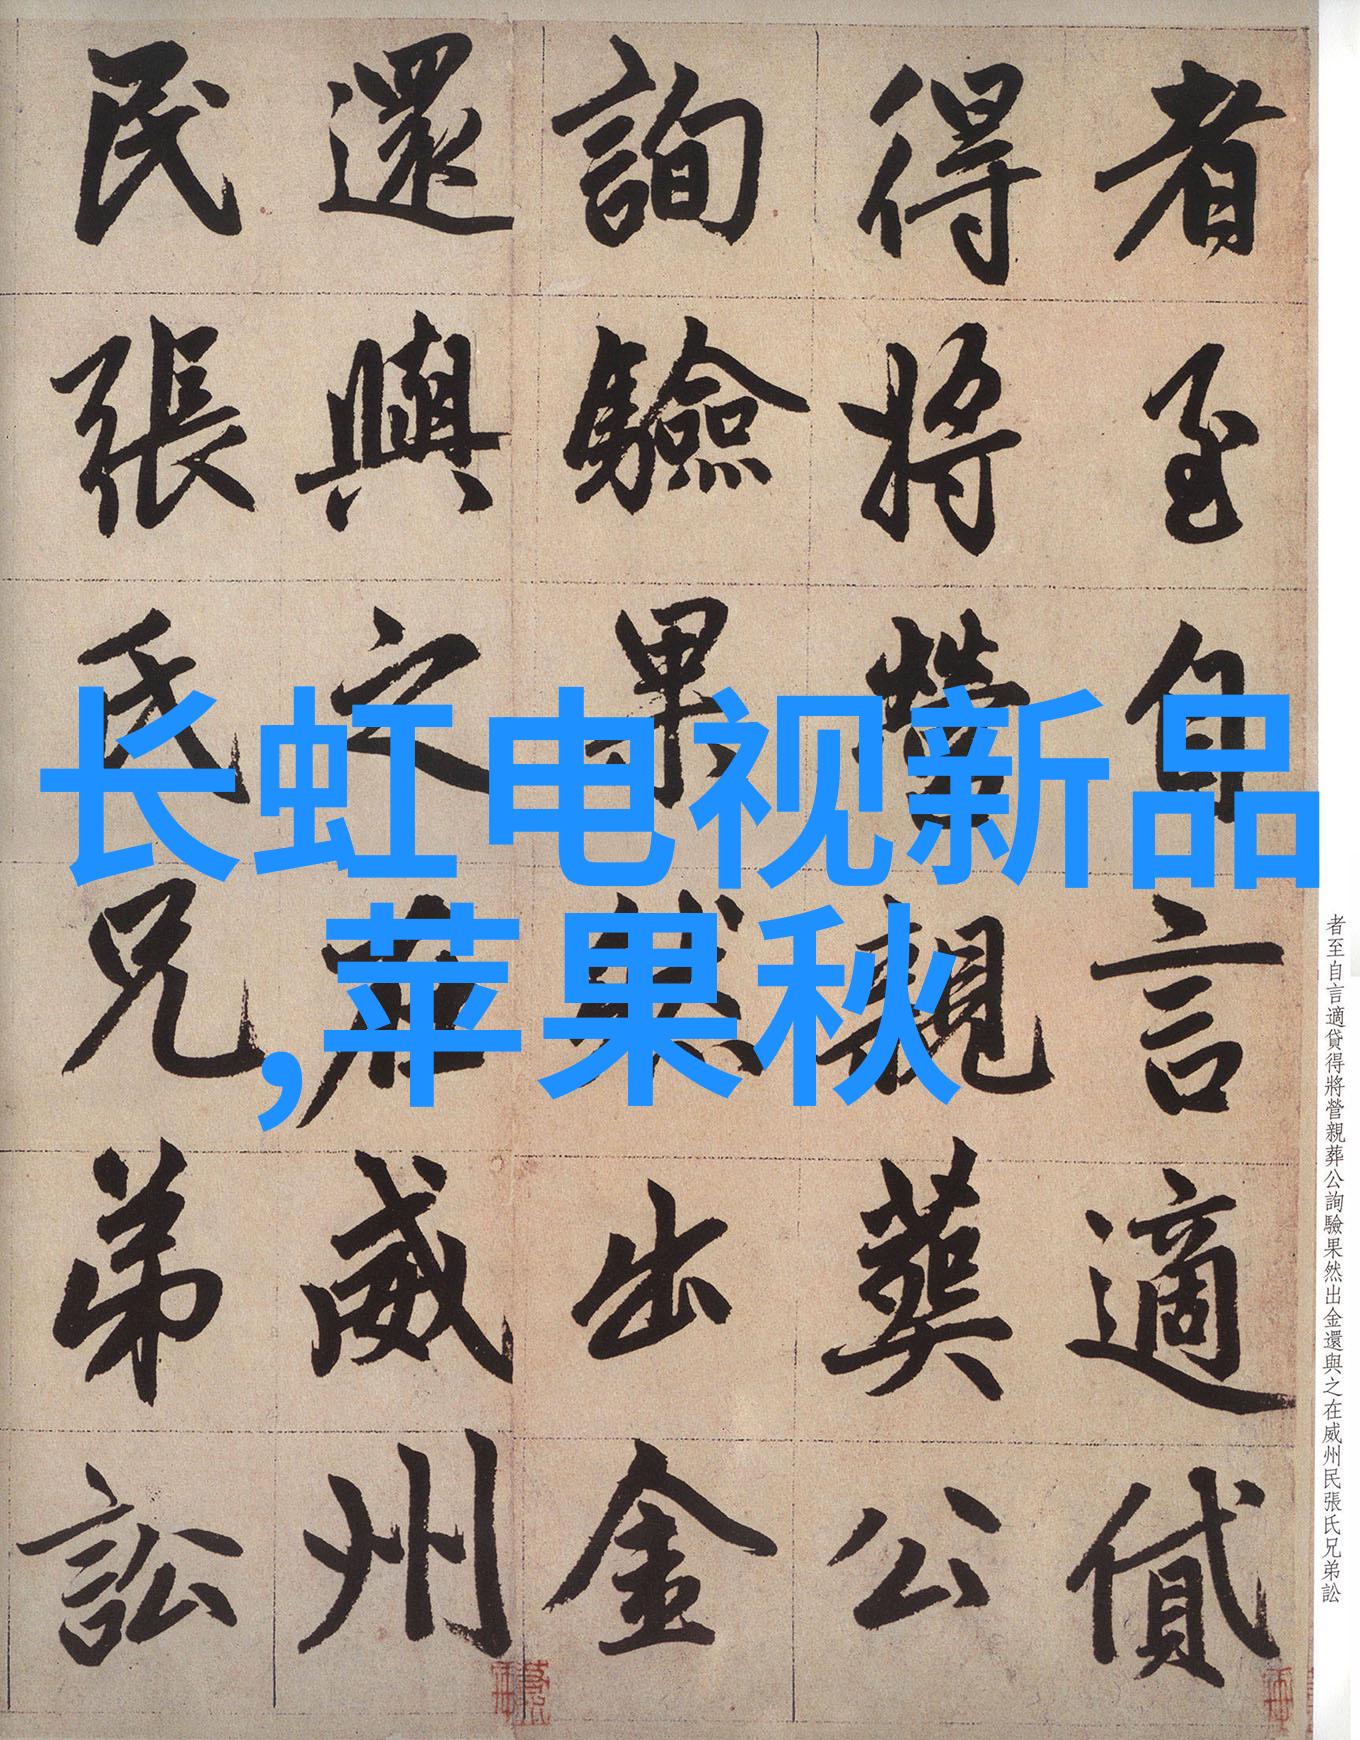 者至自言適貸
得將營親葬公
詢驗果然出金
還與之在威州
民張氏兄弟訟
長虹电视新品
,苹果秋
者至自言適貸得將營親葬公詢驗果然出金還與之在威州民張氏兄弟訟